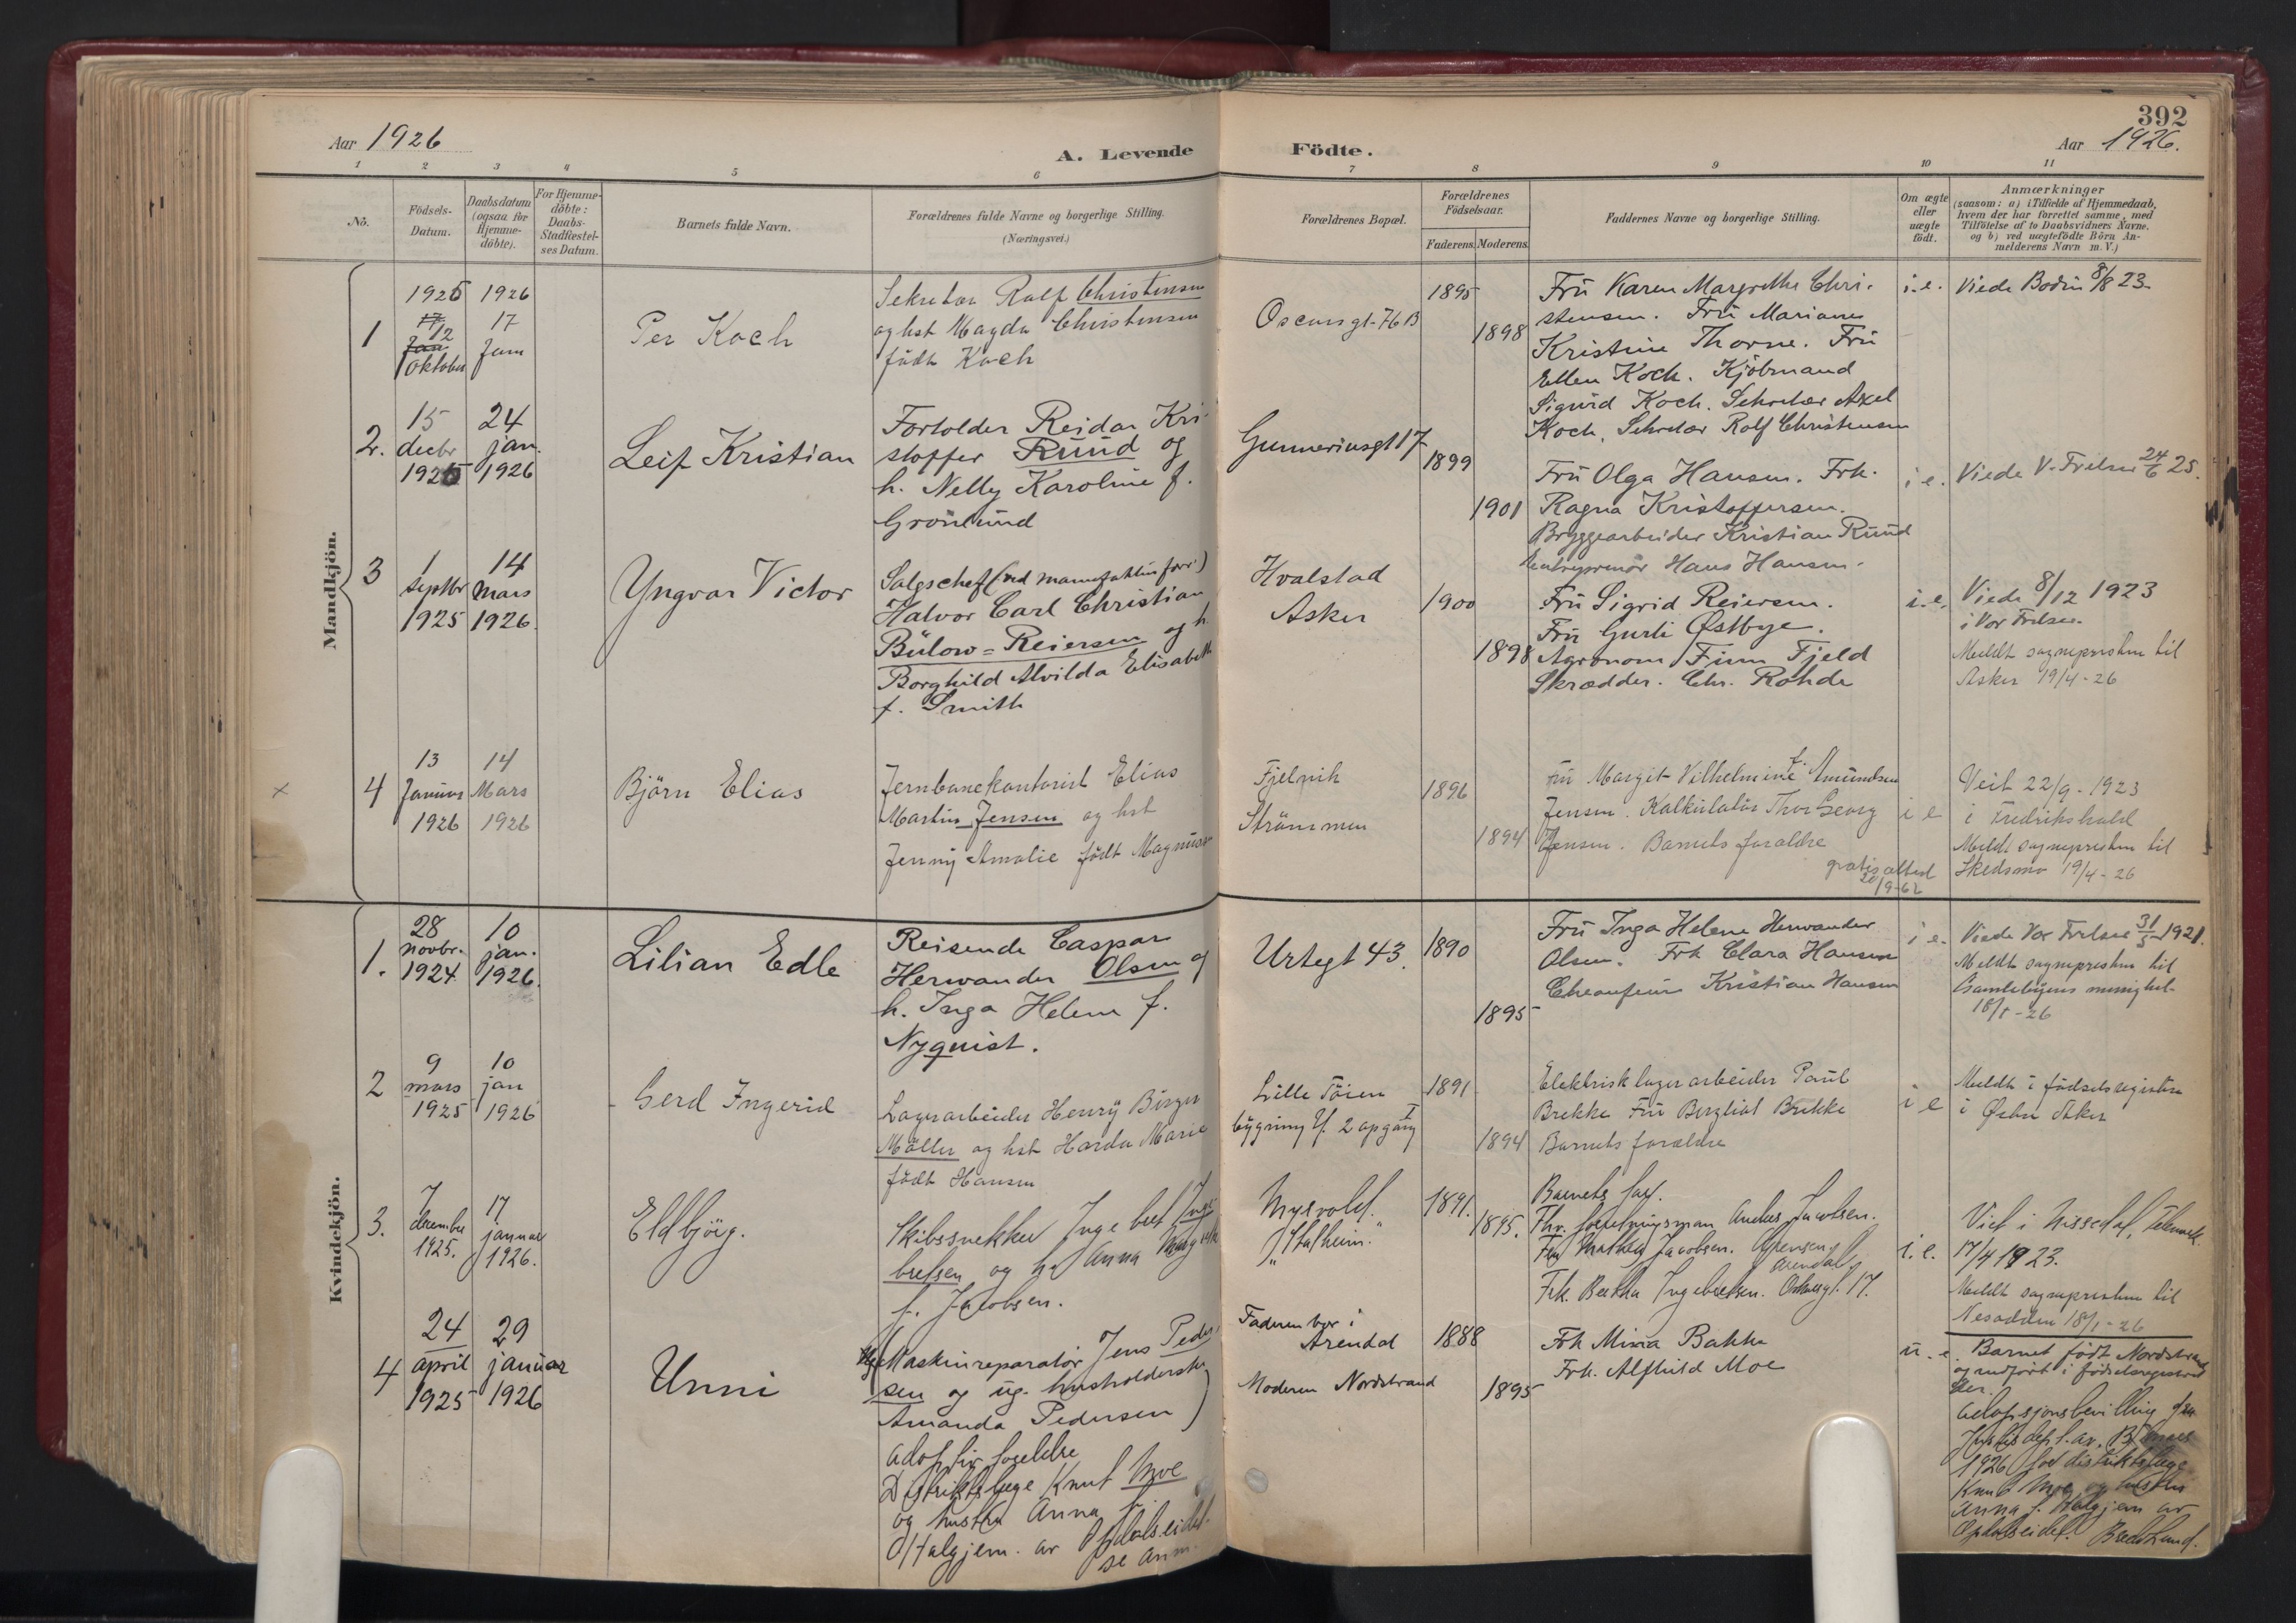 392
Aar 1926
A. Levende
Födte.
Aar 1926.
1 2 3 4 5 6 7 8 9 10 11
No.
Födsels-
Datum.
Daabsdatum
(ogsaa for
Hjemme-
döbte).
For Hjemme-
döbte:
Daabs-
Stadfæstel-
ses Datum.
Barnets fulde Navn.
Forældrenes fulde Navne og borgerlige Stilling.
(Næringsvei.)
Forældrenes Bopæl.
Forældrenes
Födselsaar.
Faderens. Moderens.
Faddernes Navne og borgerlige Stilling.
Om ægte
eller
uægte
födt.
Anmærkninger
(saasom: a) i Tilfælde af Hjemmedaab,
hvem der har forrettet samme, med
Tilföielse af to Daabsvidners Navne.
og b) ved uægtefödte Börn An-
melderens Navn m. V.)
Mandkjön.
1
1925
12
Oktober
1926
17
Jan
Per Koch
Sekretær Rolf Christensen
og hst Magda Christensen
födt Koch
Oscarsgt. 76 B
1895
1898
Fru Karen Margrethe Chri-
stensen. Fru Marianne
Kristine Thorne. Fru
Ellen Koch. Kjöbmand
Sigurd Koch. Sekretær Axel
Koch, Sekretær Rolf Christensen
i. e.
Viede Bodin 8/8 23
2.
15
decbr
1925
24
jan.
1926
Leif Kristian
Fortolder Reidar Kri-
stoffer Ruud og
h. Nelly Karoline f.
Grönlund
Gunneriusgt 17
1899
1901
Fru Olga Hansen. Frk.
Ragna Kristoffersen.
Bryggearbeider Kristian Ruud
Hans Hansen.
i e.
Viede V. Frelser 24/6 25.
3
1
septbr
1925
14
mars
1926.
Yngvar Victor
Salgschef (ved manufakturforr.)
Halvor Carl Christian
Bülow=Reiersen og h.
Borghild Alvilda Elisabeth
f. Smith
Hvalstad
Asker
1900
1898
Fru Sigrid Reiersen.
Fru Gurli Østbye.
Agronom Finn Fjeld
Skrædder. Chr. Rohde
i. e.
Viede 8/12 1923
i Vor Frelser.
Meldt sognepresten til
Asker 19/4-26
4
13
Januar
1926
14
Mars
1926
Björn Elias
Jernbanekontorist Elias
Martin Jensen og hst
Jenny Amalie födt Magnussen
Fjelvik
Strömmen
1896
1894
Fru Margit Vilhelmine f. Amundsen
Jensen. Kalkulatör Thor Georg
Jensen. Barnets forældre
gratis attest
20/9-62
i e
Viet 22/9-1923
i Fredrikshald
Meldt sognepresten til
Skedsmo 19/4-26
Kvindekjön.
1.
28
novbr.
1924
10
jan.
1926.
Lilian Edle
Reisende Caspar
Herwander Olsen og
h. Inga Helene f.
Nyquist.
Urtegt 43.
1890
1895
Fru Inga Helene Herwander
Olsen. Frk Clara Hansen
Chauffeur Kristian Hansen
i e.
Viede Vor Frelser 31/5 1921.
Meldt sognepresten til
Gamlebyens menighet
18/1-26
2
9
mars
1925
10
jan
1926
Gerd Ingerid
Lagerarbeider Henry Birger
Möller og hst Harda Marie
födt Hansen
Lille Töien
bygning 4. 2 opgang
1891
1894
Elektrisk lagerarbeider Paul
Brekke Fru Bergliot Brekke
Barnets forældre
i e
Meldt i födselsregistret
i Østre Aker
3.
7
december
1925.
17
januar
1926.
Eldbjörg.
Skibssnekker Ingebret Inge-
bretsen og h. Anna Margrethe
f. Jacobsen.
Myrvold.
"Stalheim."
1891.
1895.
Barnets far.
Anders Jacobsen.
Fru Mathea Jacobsen.
Arendal
Frk. Bertha Ingebretsen. Oskarsgt. 17.
i. e.
Viet i Nissedal, Telemark.
17/4 1923.
Meldt sognepresten til
Nesodden 18/1-26
4
24
april
1925
29
januar
1926
Unni
Ug. Maskinreparatör Jens Peder-
sen og ug. husholderske
Amanda Pedersen)
adoptivforeldre
Distriktslæge Knut Moe
og hustru Anna f.
Halgjem. av Opdalseidet.
se anm.
Faderen bor i
Arendal
Moderen Nordstrand
1888
1895
Frk Minna Bakke
Frk. Alfhild Moe
u. e.
Barnet födt Nordstrand
og indfört i födselsregistret
der.
Adopsjonsbevilling fra
Justisdept. av
1926 for distriktslæge
Knut Moe og hustru
Anna f. Halgjem av
Opdalseidet.